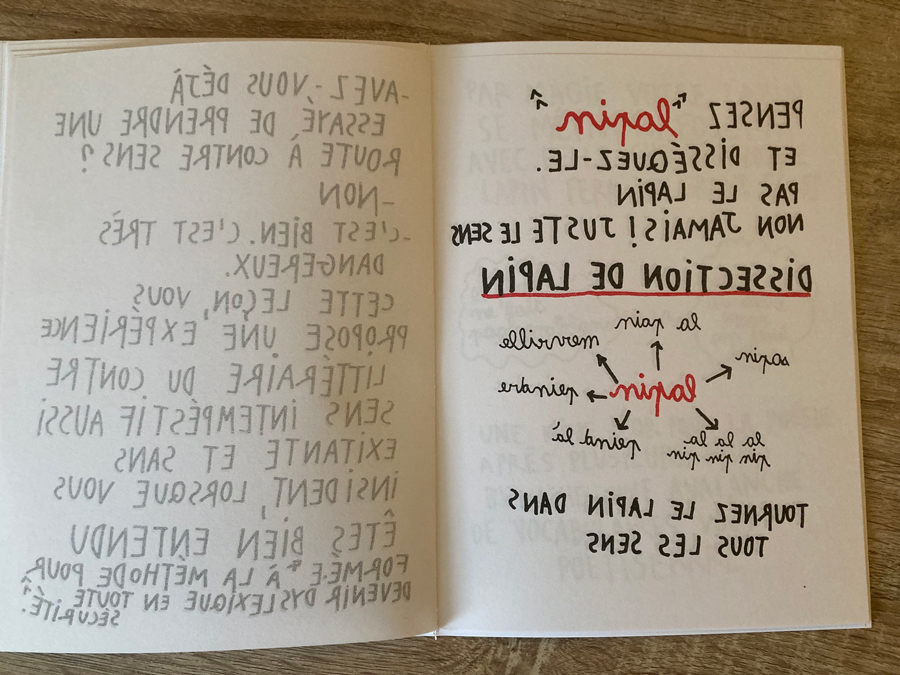 -AVEZ-VOUS DÉJÀ
ESSAYÉ DE PRENDRE UNE
ROUTE À CONTRE SENS ?
-NON
-C'EST BIEN. C'EST TRÈS
DANGEREUX.
CETTE LEÇON, VOUS
PROPOSE UNE EXPÉRIENCE
LITTÉRAIRE DU CONTRE
SENS INTEMPÉSTIF AUSSI
EXITANTE ET SANS
INSIDENT, LORSQUE VOUS
ÊTES BIEN ENTENDU
FORMÉ.E "À LA MÉTHODE POUR
DEVENIR DYSLEXIQUE EN TOUTE
SÉCURITÉ."
PENSEZ "lapin"
ET DISSÉQUEZ-LE.
PAS LE LAPIN
NON JAMAIS ! JUSTE LE SENS
DISSECTION DE LAPIN
la pain
merveille
sapin
lapin
peindre
peind là
la la la
pin pin pin
TOURNEZ LE LAPIN DANS
TOUS LES SENS